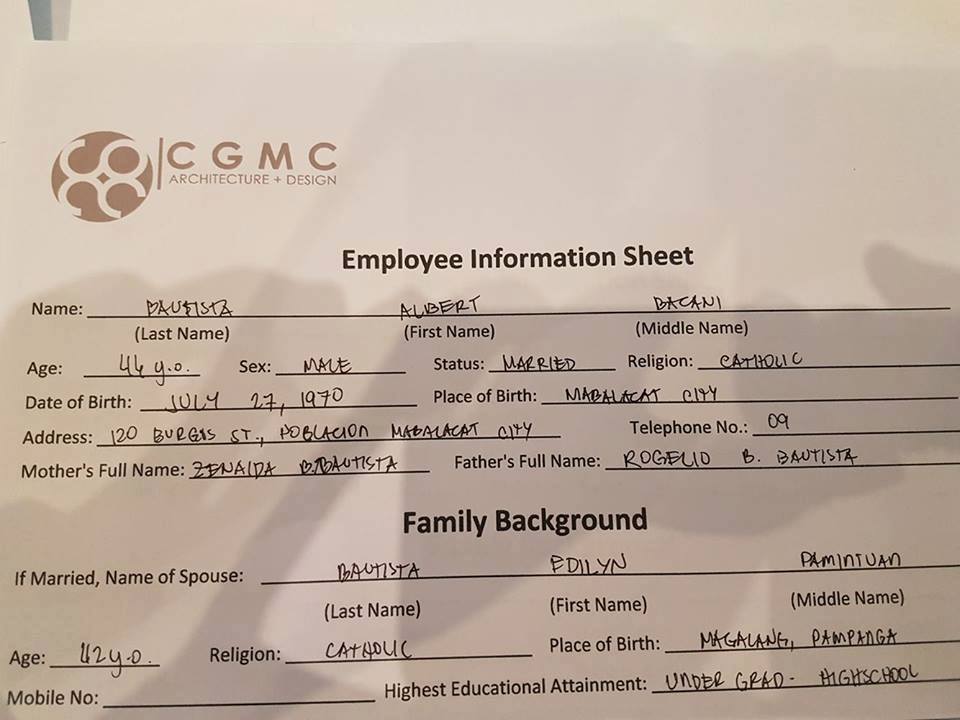 CGMC
ARCHITECTURE + DESIGN
Employee Information Sheet
Name: BAUTISTA ALBERT BACANI
(Last Name) (First Name) (Middle Name)
Age: 46 y.o. Sex: MALE Status: MARRIED Religion: CATHOLIC
Date of Birth: JULY 27, 1970 Place of Birth: MABALACAT CITY
Address: 120 BURGOS ST., POBLACION MABALACAT CITY Telephone No.: 09
Mother's Full Name: ZENAIDA B. BAUTISTA Father's Full Name: ROGELIO B. BAUTISTA
Family Background
If Married, Name of Spouse: BAUTISTA EDILYN PAMINTUAN
(Last Name) (First Name) (Middle Name)
Age: 42 y.o. Religion: CATHOLIC Place of Birth: MAGALANG, PAMPANGA
Mobile No: Highest Educational Attainment: UNDER GRAD - HIGHSCHOOL